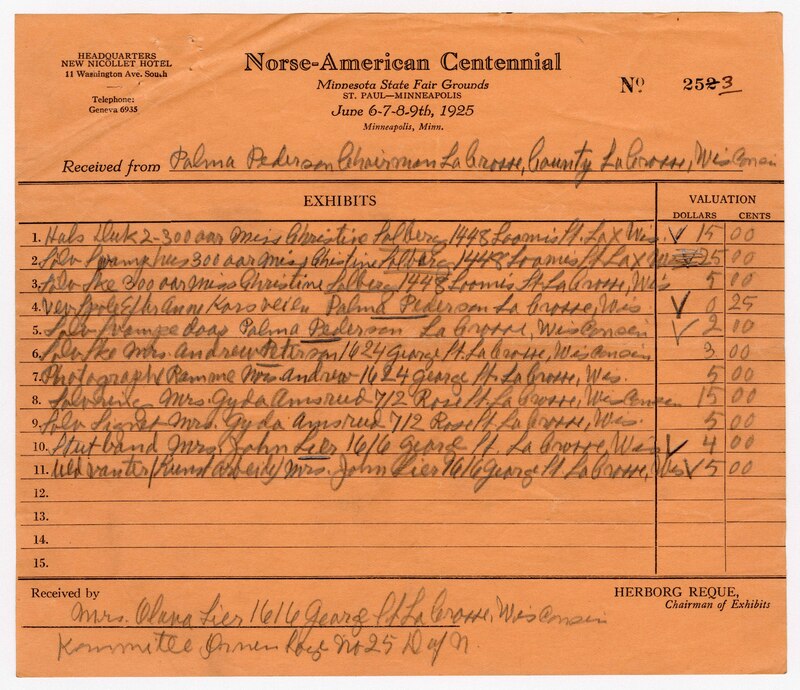 HEADQUARTERS
NEW NICOLLET HOTEL
11 Washington Ave. South
Telephone:
Geneva 6935
Norse-American Centennial
Minnesota State Fair Grounds
ST. PAUL—MINNEAPOLIS
June 6-7-8-9th, 1925
Minneapolis, Minn.
No 2523
Received from Palma Pederson Chairman La Crosse, County La Crosse, Wisconsin
EXHIBITS VALUATION
DOLLARS CENTS
1. Hals Duk 2-300 aar Miss Christine Solberg 1448 Loomis St. La X Wis. 15 00
2. Solv 300 aar Miss Christine Solberg 1448 Loomis St. La X 25 00
3. Solv Ske 300 aar Miss Christine Solberg 1448 Loomis St. La Crosse, Wis 5 00
4. Anne Korsveien Palma Pederson La Crosse, Wis 0 25
5. Solv Palma Pederson La Crosse, Wisconsin 2 00
6. Solv Ske Mrs. Andrew Peterson 1624 George St. La Crosse, Wisconsin 3 00
7. Photograph Ramme Mrs Andrew 1624 George St. La Crosse, Wis. 5 00
8. Mrs. Gyda Amsrud 712 Rose St. La Crosse, Wisconsin 15 00
9. Solv Signet Mrs. Gyda Amsrud 712 Rose St. La Crosse, Wis. 5 00
10. Strut band Mrs. John Lier 1616 George St La Crosse, Wis 4 00
11. Uld vanter (Kunst arbeide) Mrs. John Lier 1616 George St. La Crosse, Wis 5 00
12.
13.
14.
15.
Received by
HERBORG REQUE,
Chairman of Exhibits
Mrs. Olava Lier 1616 George St La Crosse, Wisconsin
Kommittee No 25 D of N.